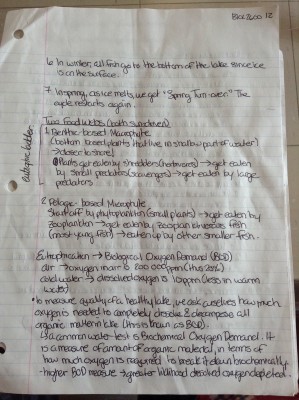 BIOL2600 12
6. In winter, all fish go to the bottom of the lake since ice
is on the surface.
7. In spring, as ice melts, we get "Spring Turn-over." The
cycle restarts again.
Two Food Webs (both sun driven)
1. Benthic-based Macrophyte
(bottom based plants that live in shallow part of water)
→ closer to shore!
Plants get eaten by shredders (herbivores) → get eaten
by small predators (scavengers) → get eaten by large
predators.
2. Pelagic-based Macrophyte
Start off by phytoplankton (small plants) → get eaten by
zooplankton → get eaten by fish
(most young fish) → eaten up by other smaller fish.
Eutrophication → Biological Oxygen Demand (BOD)
air → oxygen in air is 200 000ppm (thus 20%)
cold water → dissolved oxygen is 10ppm (less in warm
water)
• to measure quality of a healthy lake, we ask ourselves how much
oxygen is needed to completely dissolve & decompose all
organic matter in lake (this is known as BOD).
a common water test is Biochemical Oxygen Demand. It
is a measure of amount of organic material, in terms of
how much oxygen is required to break it down biochemically.
- higher BOD measure → greater likelihood dissolved oxygen depleted.